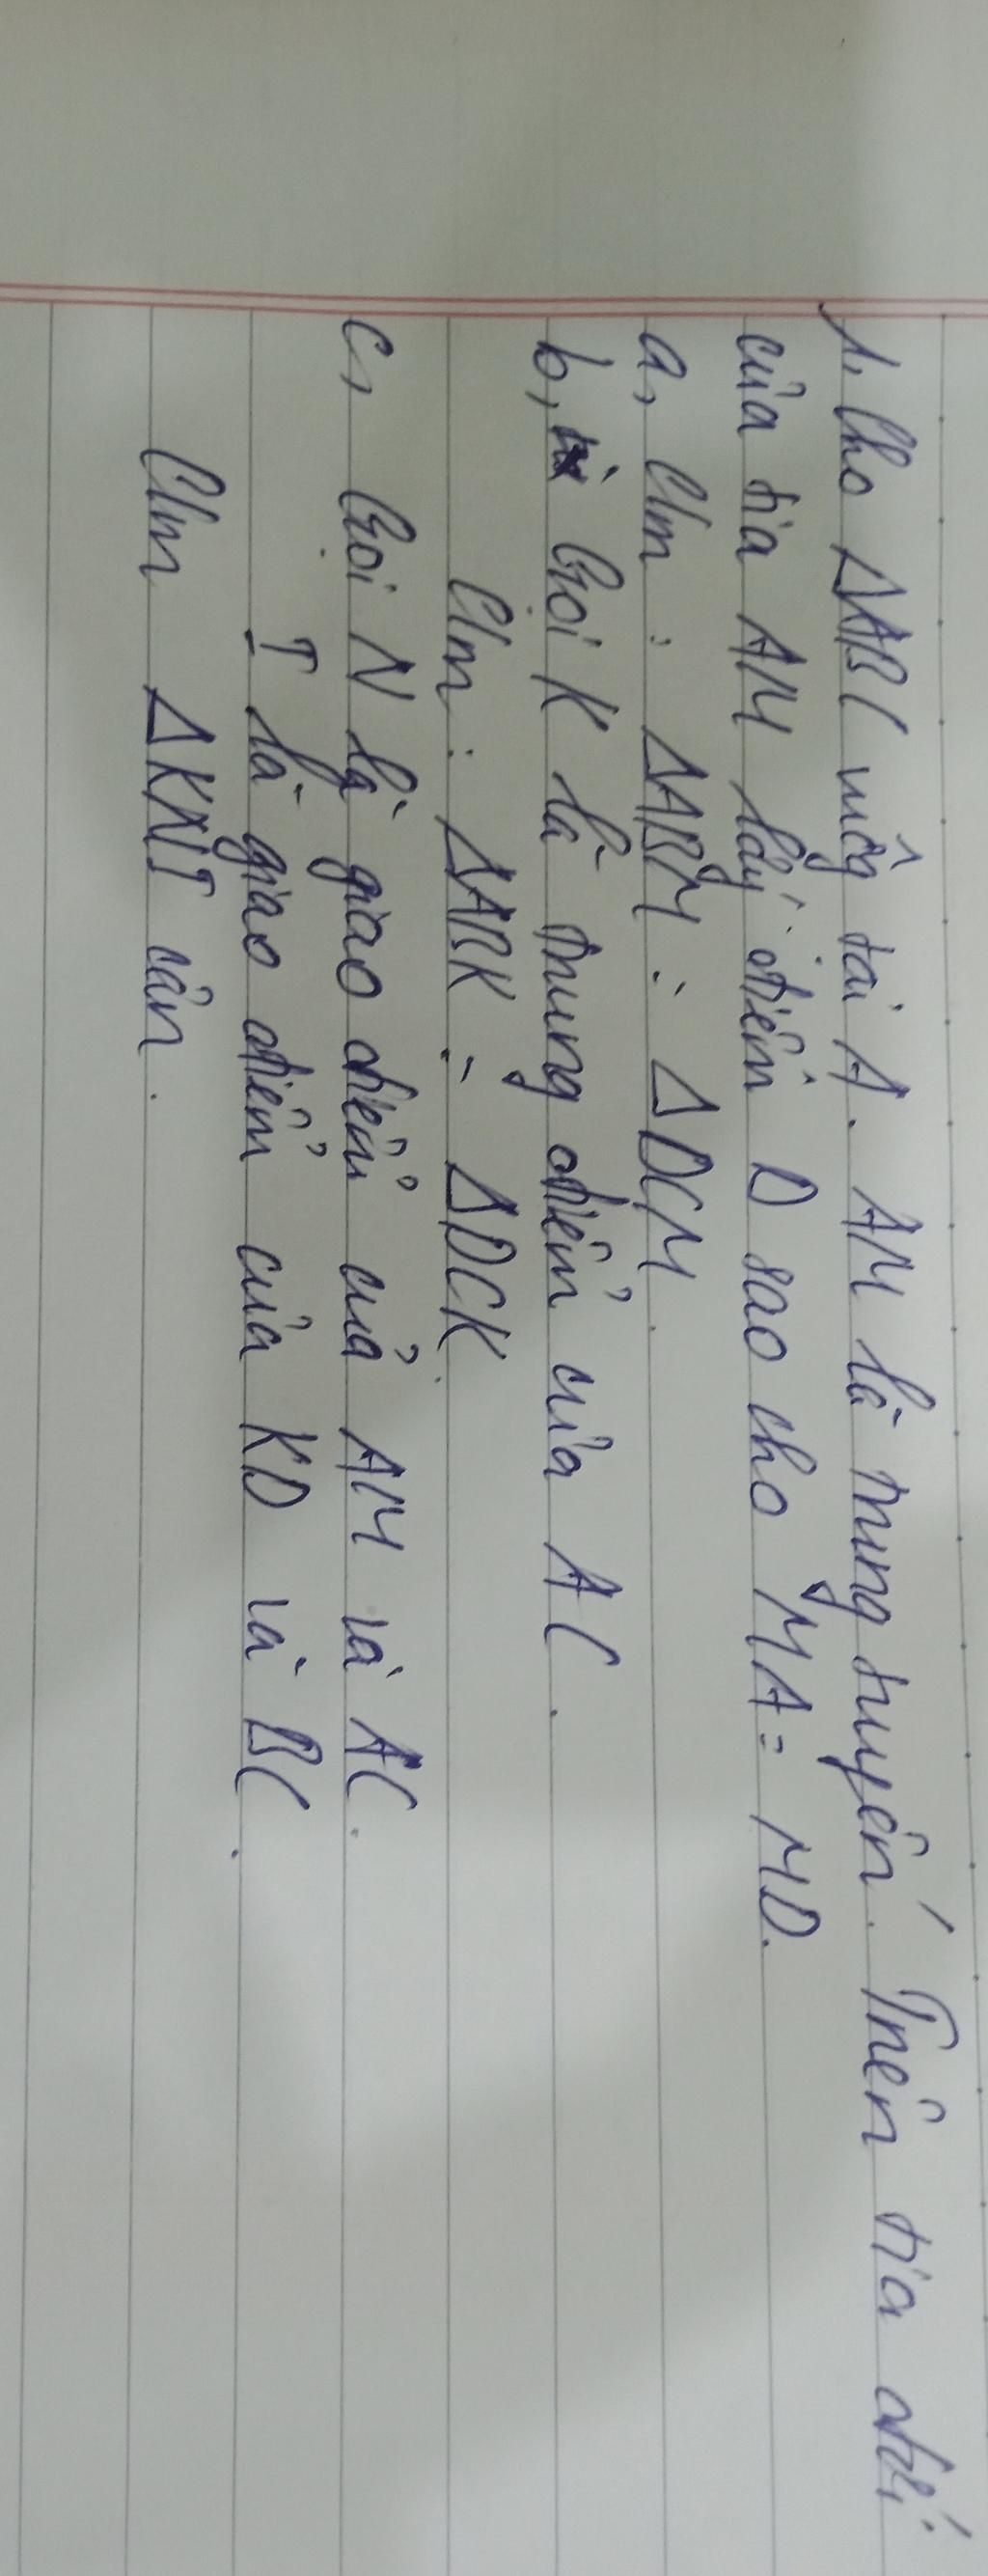 1, Cho ΔABC vuông tại A. AM là trung tuyến. Trên tia đối
của tia AM lấy điểm D sao cho MA = MD.
a, Cm : ΔABM = ΔDCM.
b, Gọi K là trung điểm của AC.
Cm : ΔABK = ΔDCK.
c, Gọi N là giao điểm của AM và AC.
I là giao điểm của KD và BC.
Cm ΔKNI cân.